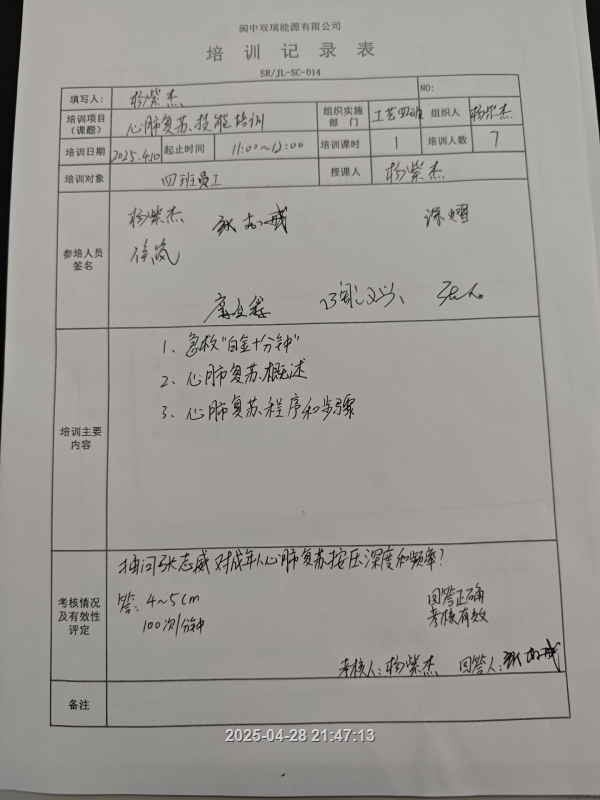 阆中双瑞能源有限公司
培训记录表
SR/JL-SC-014
填写人： 杨紫杰 NO:
培训项目（课题） 心肺复苏技能培训 组织实施部门 工艺四班 组织人 杨紫杰
培训日期 2025.4.10 起止时间 11:00～12:00 培训课时 1 培训人数 7
培训对象 四班员工 授课人 杨紫杰
参培人员签名
杨紫杰 张志威
培训主要内容
1、急救“白金十分钟”
2、心肺复苏概述
3、心肺复苏程序和步骤
考核情况及有效性评定
抽问张志威对成年人心肺复苏按压深度和频率？
答：4～5cm 回答正确
100次/分钟 考核有效
考核人：杨紫杰 回答人：张志威
备注
2025-04-28 21:47:13